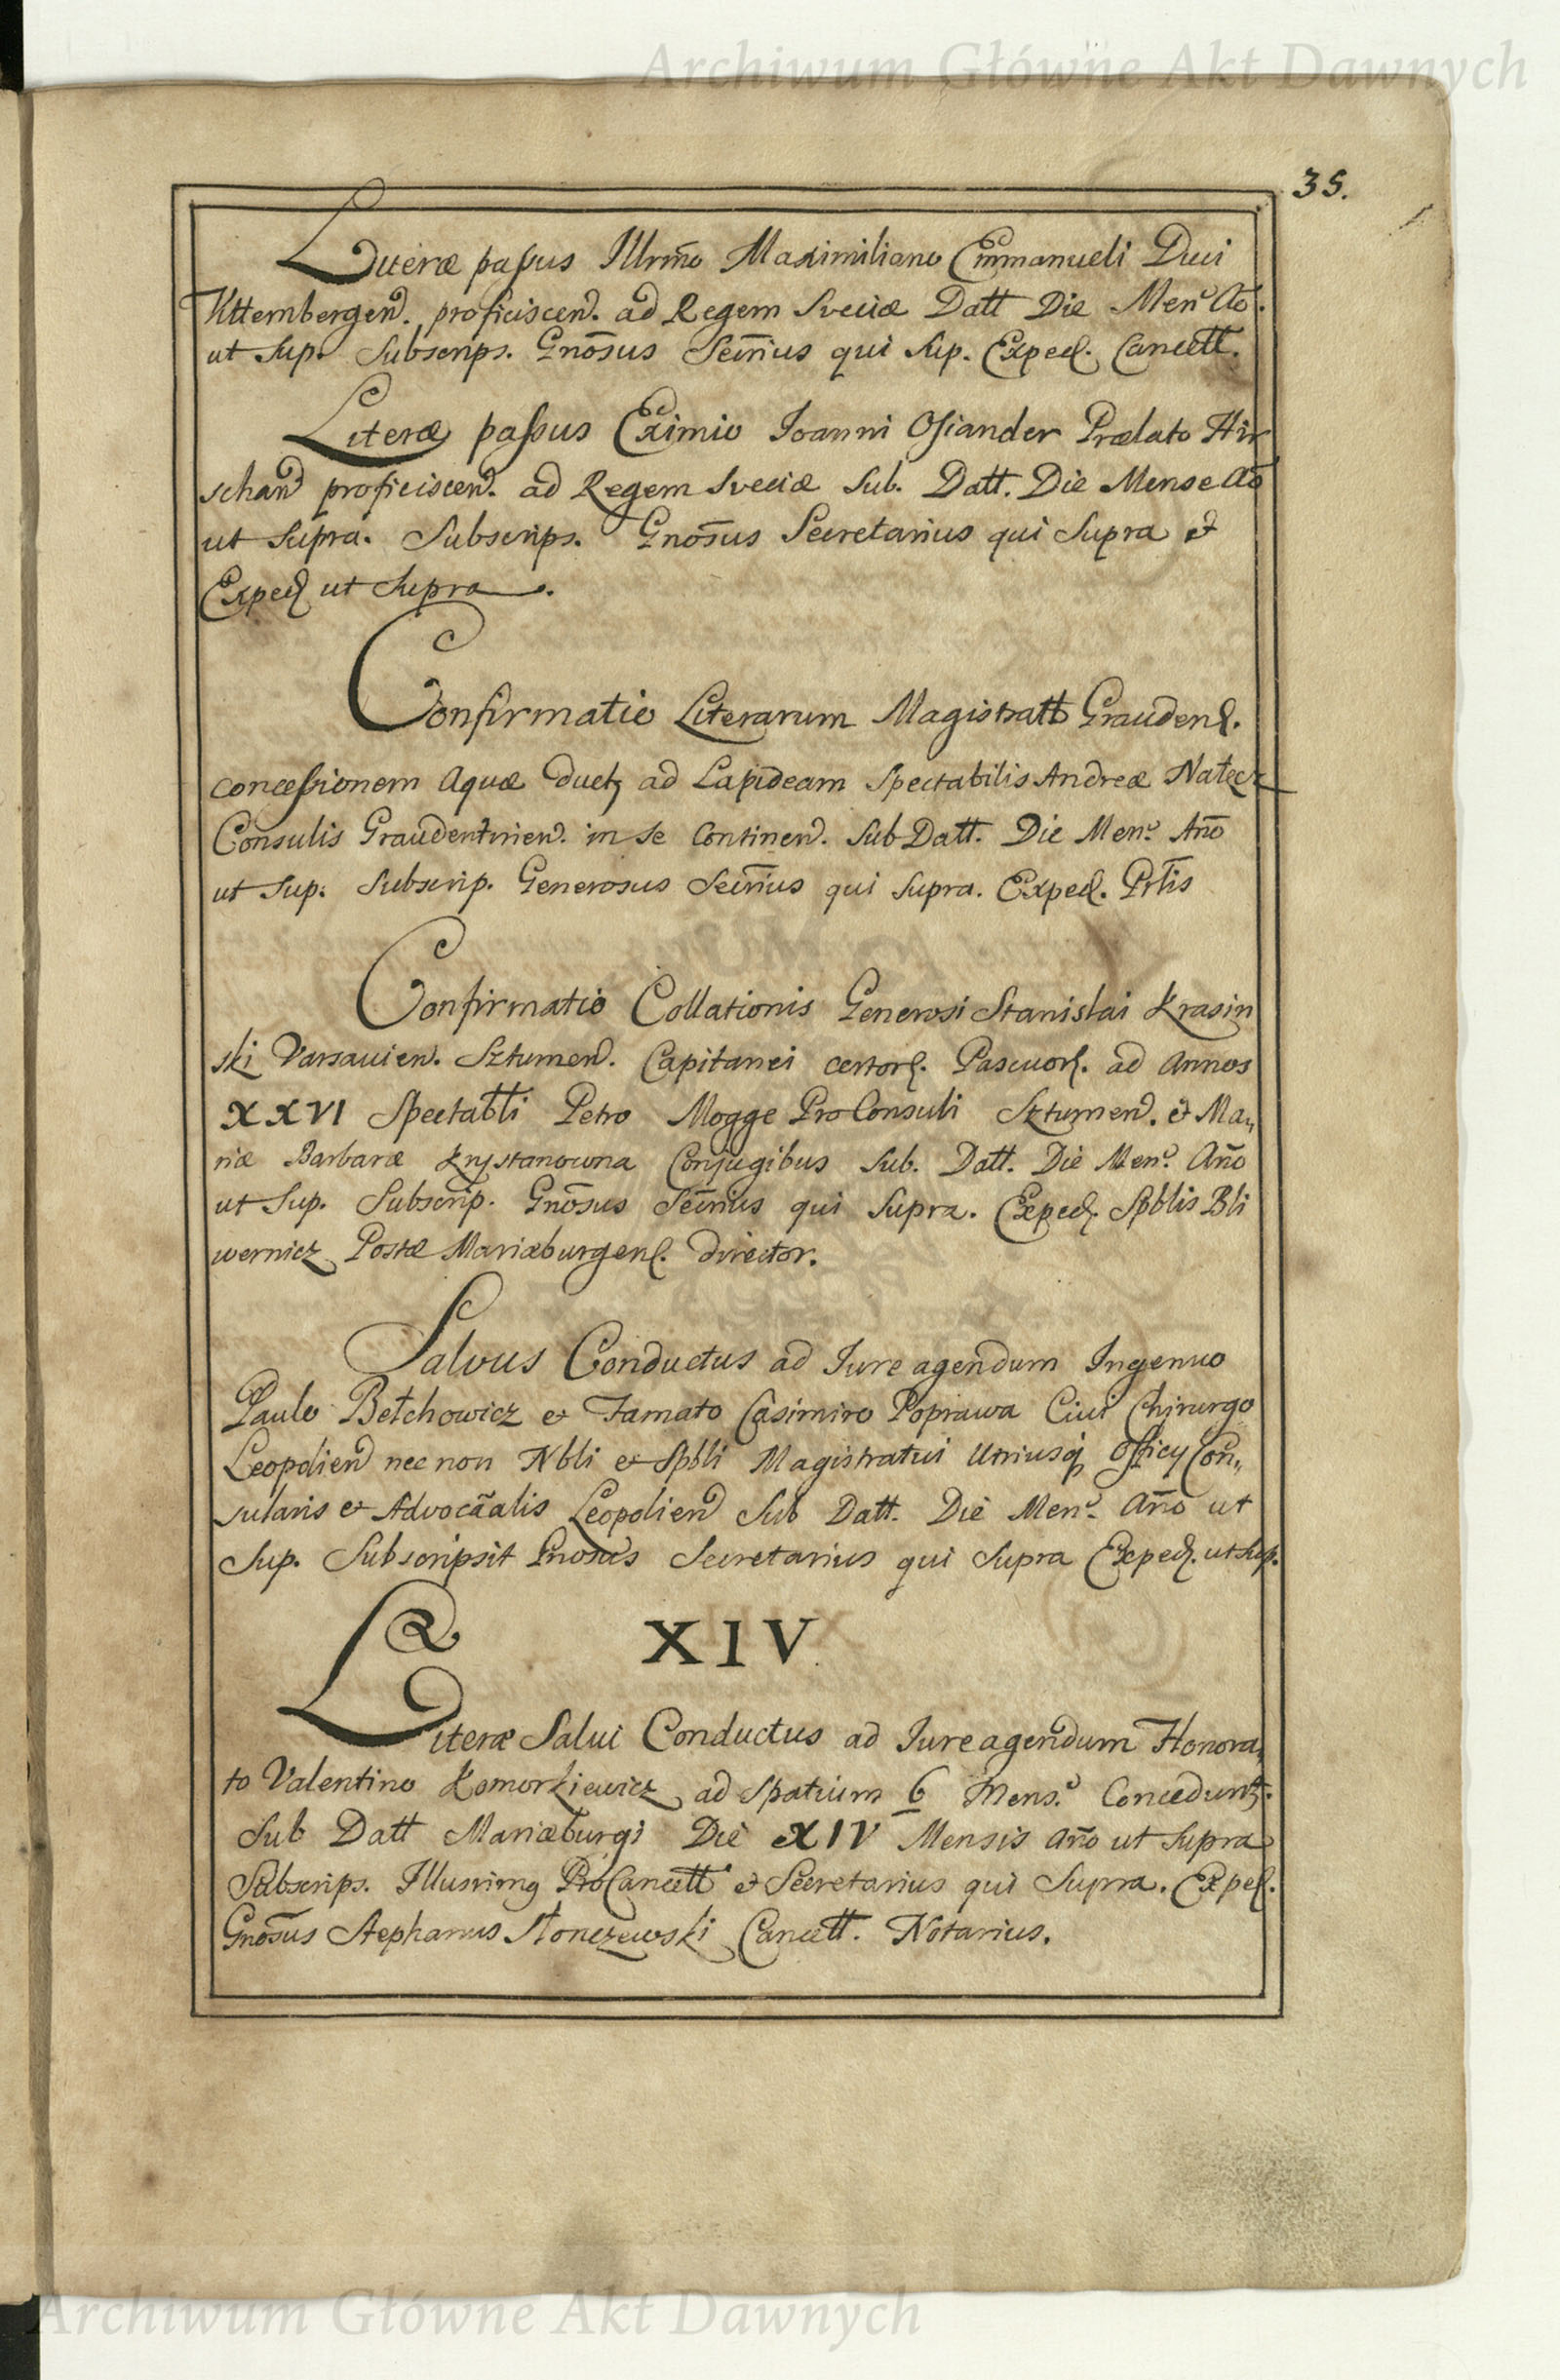 Archiwum Główne Akt Dawnych
35.
Literæ passus Illrmo Maximiliano Emmanueli Duci
Wttembergen. proficiscen. ad Regem Sveciæ Datt Die Men. Ao.
ut Sup. Subscrips. Gnosus Secrius qui Sup. Exped. Cancell.
Literæ passus Eximio Joanni Osiander Prælato Hir
schan proficiscen. ad Regem Sveciæ Sub. Datt. Die Mense Ao
ut Supra. Subscrips. Gnosus Secretarius qui Supra et
Exped ut Supra.
Confirmatio Literarum Magistratt Grauden.
concessionem Aquæ duct ad Lapideam Spectabilis Andreæ Natęcz
Consulis Graudentinen. in se Continen. Sub Datt. Die Men. Año
ut Sup. Subscrip. Generosus Secrius qui Supra. Exped. Prtis
Confirmatio Collationis Generosi Stanislai Krasin
ski Varsavien. Sztumen. Capitanei certor. Pascuor. ad Annos
XXVI Spectabli Petro Mogge Pro Consuli Sztumen. et Ma„
riæ Barbaræ Krystanowna Conjugibus Sub. Datt. Die Men. Año
ut Sup. Subscrip. Gnosus Secrius qui Supra. Exped. Spblis Bli
wernicz Postæ Mariæburgen. director.
Salvus Conductus ad Jure agendum Ingenuo
Paulo Bełchowicz et Famato Casimiro Poprawa Civi Chirurgo
Leopolien nec non Nbli et Spbli Magistratui Utriusq Officy Con„
sularis et Advocãalis Leopolien Sub Datt. Die Men. Año ut
Sup. Subscripsit Gnosus Secretarius qui Supra Exped. ut Sup.
XIV
Literæ Salvi Conductus ad Jure agendum Honora„
to Valentino Komorkiewicz ad Spatium 6 Mens. Concedunt.
Sub Datt Mariæburgi Die XIV Mensis Año ut Supra
Subscrips. Illusrimg ProCancell et Secretarius qui Supra. Exped.
Gnosus Stephanus Słonczewski Cancell. Notarius.
Archiwum Główne Akt Dawnych